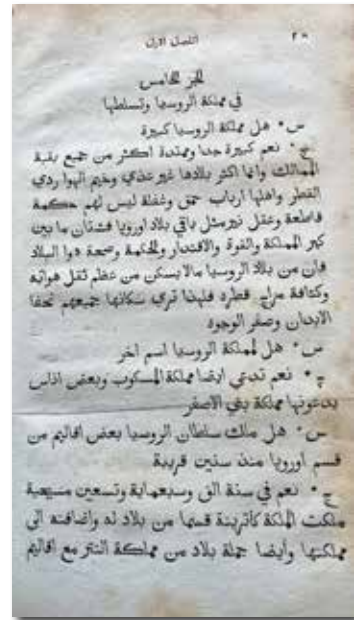 ٢٠ الفصل الاول
الجزء الخامس
في مملكة الروسيا وتسلطها
س * هل مملكة الروسيا كبيرة
ج * نعم كبيرة جدا وممتدة اكثر من جميع بقية
الممالك وانما اكثر بلادها غير عذي وخيم الهوا ردي
القطر واهلها ارباب حمق وغفلة ليس لهم حكمة
قاطعة وعقل نير مثل باقي بلاد اوروپا فشتان ما بين
كبر المملكة والقوة والاقتدار والحكمة وصحة هوا البلاد
فان من بلاد الروسيا ما لا يسكن من عظم ثقل هوايه
وكثافة مزاج قطره فلهذا تري سكانها جميعهم نحفا
الابدان وصفر الوجوه
س * هل لمملكة الروسيا اسم اخر
ج * نعم تدعي ايضا مملكة المسكوب وبعض اناس
يدعونها مملكة بني الاصفر
س * هل ملك سلطان الروسيا بعض اقاليم من
قسم اوروپا منذ سنين قريبة
ج * نعم في سنة الف وسبعماية وتسعين مسيحية
ملكت الملكة كاترينة قسما من بلاد له واضافته الي
مملكتها وأيضا جملة بلاد من مملكة التتر مع اقاليم